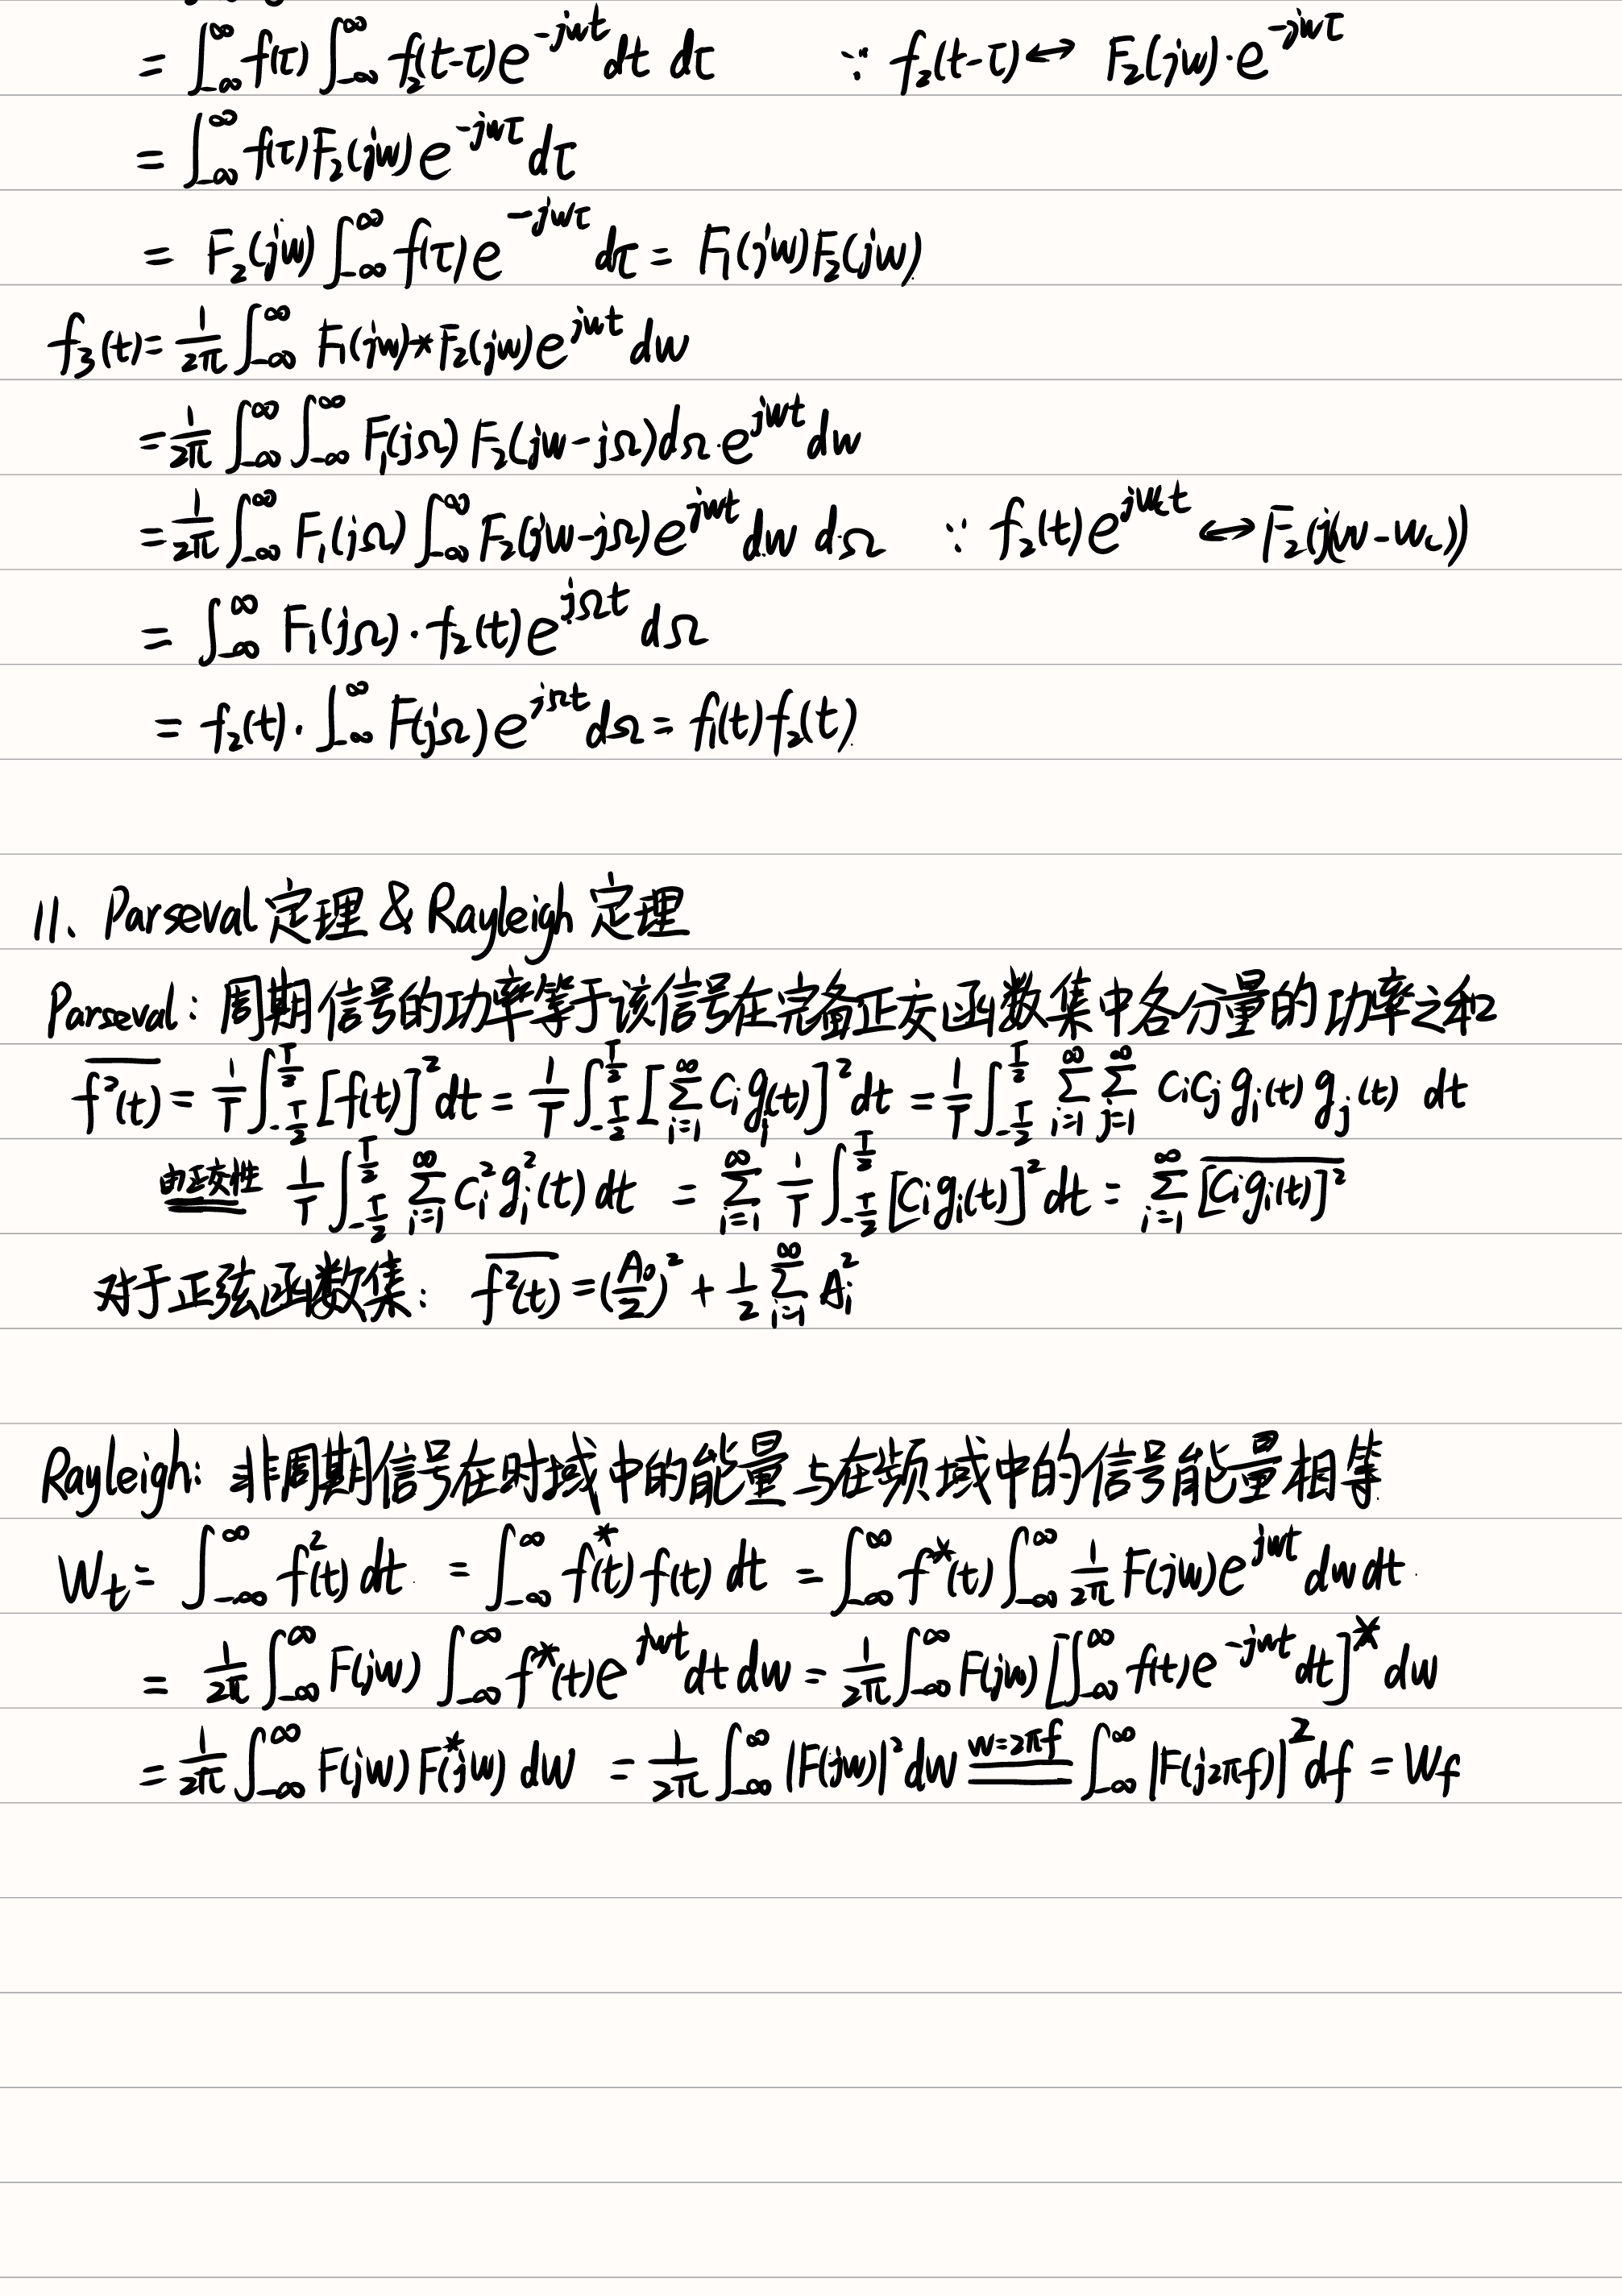 = ∫_{-∞}^{∞} f(τ) ∫_{-∞}^{∞} f₂(t-τ) e^{-jωt} dt dτ ∵ f₂(t-τ) ↔ F₂(jω)·e^{-jωτ}
= ∫_{-∞}^{∞} f(τ) F₂(jω) e^{-jωτ} dτ
= F₂(jω) ∫_{-∞}^{∞} f(τ) e^{-jωτ} dτ = F₁(jω) F₂(jω)
f₃(t) = 1/2π ∫_{-∞}^{∞} F₁(jω) * F₂(jω) e^{jωt} dω
= 1/2π ∫_{-∞}^{∞} ∫_{-∞}^{∞} F₁(jΩ) F₂(jω-jΩ) dΩ·e^{jωt} dω
= 1/2π ∫_{-∞}^{∞} F₁(jΩ) ∫_{-∞}^{∞} F₂(jω-jΩ) e^{jωt} dω dΩ ∵ f₂(t) e^{jω_c t} ↔ F₂(j(ω-ω_c))
= ∫_{-∞}^{∞} F₁(jΩ)·f₂(t) e^{jΩt} dΩ
= f₂(t)·∫_{-∞}^{∞} F(jΩ) e^{jΩt} dΩ = f₁(t) f₂(t)
11、Parseval 定理 & Rayleigh 定理
Parseval: 周期信号的功率等于该信号在完备正交函数集中各分量的功率之和
\overline{f²(t)} = 1/T ∫_{-T/2}^{T/2} [f(t)]² dt = 1/T ∫_{-T/2}^{T/2} [∑_{i=1}^{∞} C_i g_i(t)]² dt = 1/T ∫_{-T/2}^{T/2} ∑_{i=1}^{∞} ∑_{j=1}^{∞} C_i C_j g_i(t) g_j(t) dt
由正交性 1/T ∫_{-T/2}^{T/2} ∑_{i=1}^{∞} C_i² g_i²(t) dt = ∑_{i=1}^{∞} 1/T ∫_{-T/2}^{T/2} [C_i g_i(t)]² dt = ∑_{i=1}^{∞} \overline{[C_i g_i(t)]²}
对于正弦函数集: \overline{f²(t)} = (A₀/2)² + 1/2 ∑_{i=1}^{∞} A_i²
Rayleigh: 非周期信号在时域中的能量与在频域中的信号能量相等
W_t = ∫_{-∞}^{∞} f²(t) dt = ∫_{-∞}^{∞} f*(t) f(t) dt = ∫_{-∞}^{∞} f*(t) ∫_{-∞}^{∞} 1/2π F(jω) e^{jωt} dω dt
= 1/2π ∫_{-∞}^{∞} F(jω) ∫_{-∞}^{∞} f*(t) e^{jωt} dt dω = 1/2π ∫_{-∞}^{∞} F(jω) [∫_{-∞}^{∞} f(t) e^{-jωt} dt]* dω
= 1/2π ∫_{-∞}^{∞} F(jω) F*(jω) dω = 1/2π ∫_{-∞}^{∞} |F(jω)|² dω \overset{ω=2πf}{=} ∫_{-∞}^{∞} |F(j2πf)|² df = W_f